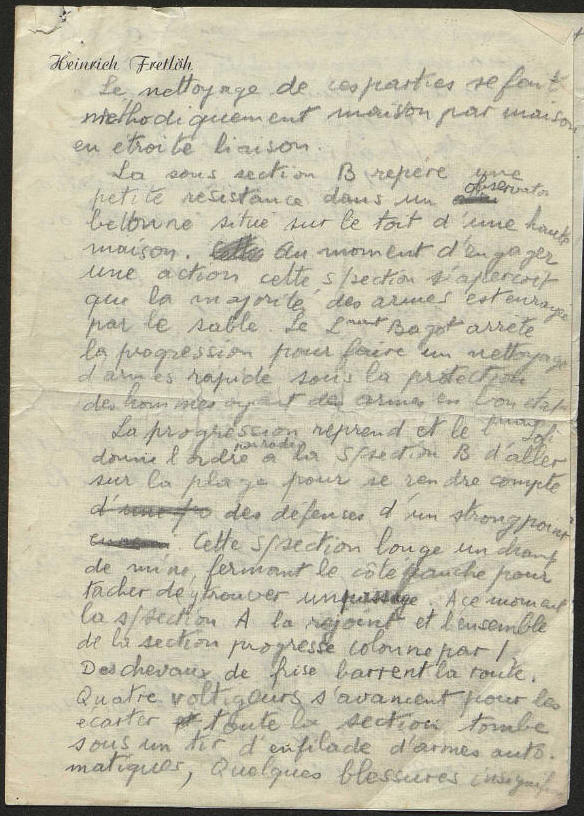 Heinrich Fretlöh
Le nettoyage de ces parties se font
méthodiquement maison par maison
en etroite liaison.
La sous section B repère une
petite résistance dans un observatoi
betonne situé sur le toit d'une haute
maison. Au moment d'engager
une action cette s/section s'aperçoit
que la majorité des armes est enrayé
par le sable. Le Lnant Bagot arrête
la progression pour faire un nettoyage
d'armes rapide sous la protection
des hommes ayant des armes en bon etat
La progression reprend et le
donne l'ordre par radio à la S/section B d'aller
sur la plage pour se rendre compte
des défenses d'un strong point
Cette s/section longe un champ
de mine, fermant le côté gauche pour
tacher de trouver un passage. A ce moment
la s/section A la rejoint et l'ensemble
de la section progresse colonne par 1
Des chevaux de frise barrent la route.
Quatre voltigeurs s'avancent pour les
écarter toute la section tombe
sous un tir d'enfilade d'armes auto-
matiques, Quelques blessures